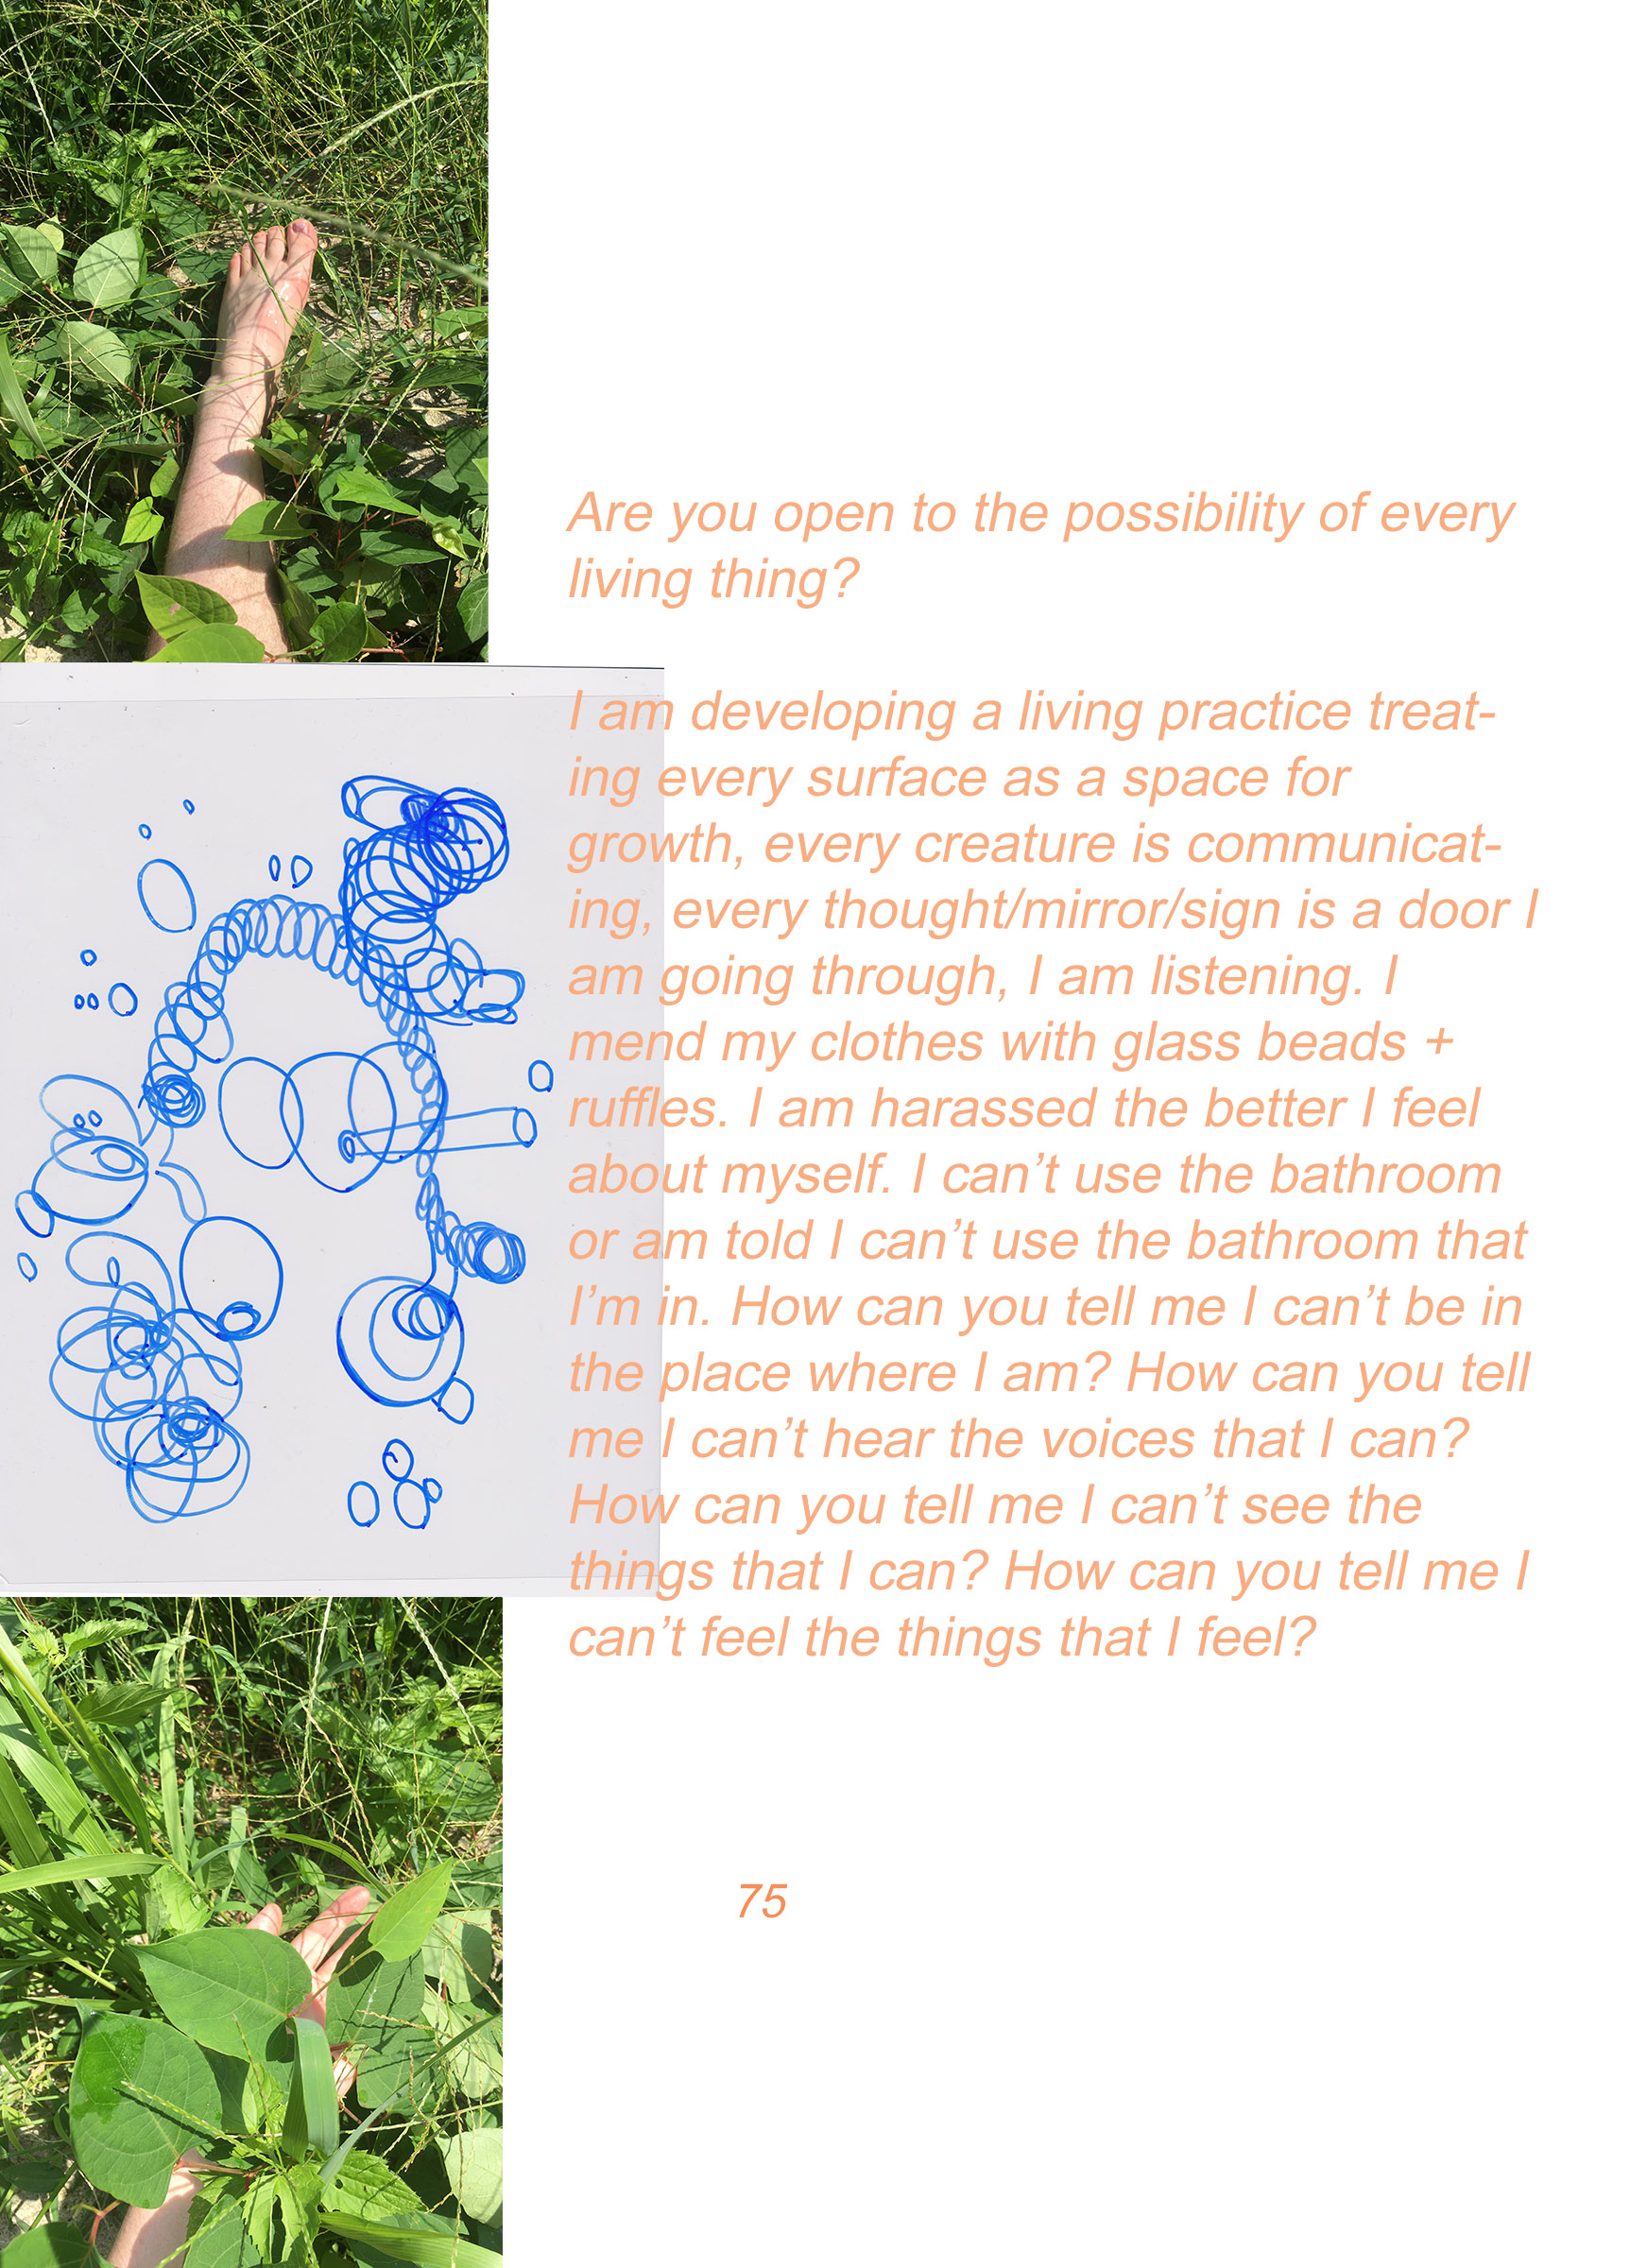 Are you open to the possibility of every
living thing?
I am developing a living practice treat-
ing every surface as a space for
growth, every creature is communicat-
ing, every thought/mirror/sign is a door I
am going through, I am listening. I
mend my clothes with glass beads +
ruffles. I am harassed the better I feel
about myself. I can’t use the bathroom
or am told I can’t use the bathroom that
I’m in. How can you tell me I can’t be in
the place where I am? How can you tell
me I can’t hear the voices that I can?
How can you tell me I can’t see the
things that I can? How can you tell me I
can’t feel the things that I feel?
75